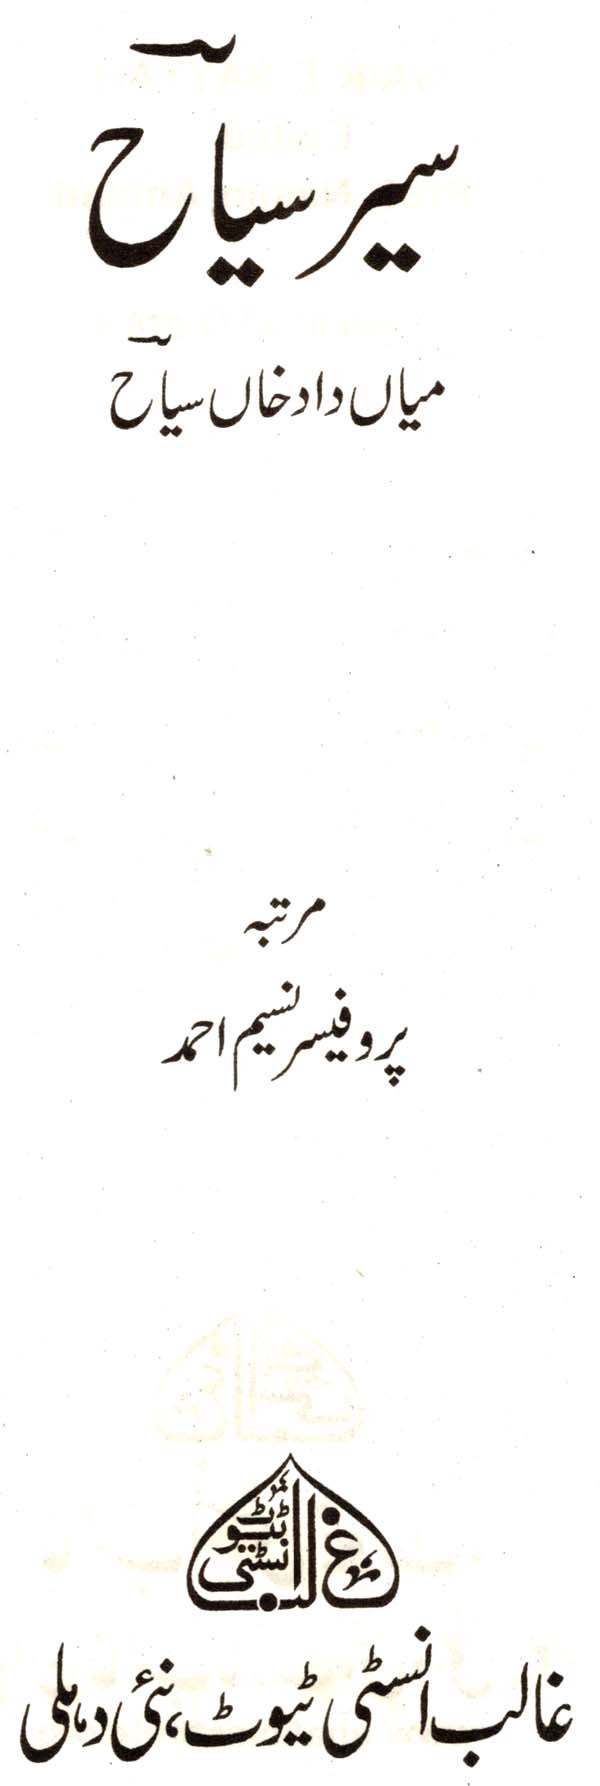 سیر سیاحؔ
میاں داد خاں سیاحؔ
مرتبہ
پروفیسر نسیم احمد
غالب انسٹی ٹیوٹ
غالب انسٹی ٹیوٹ، نئی دہلی